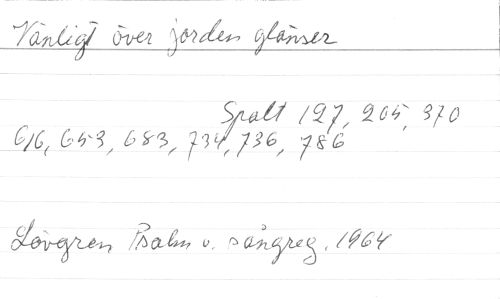 Vänligt över jorden glänser
Spalt 127, 205, 370
616, 653, 683, 734, 736, 786
Lövgren Psalm o. sångreg. 1964